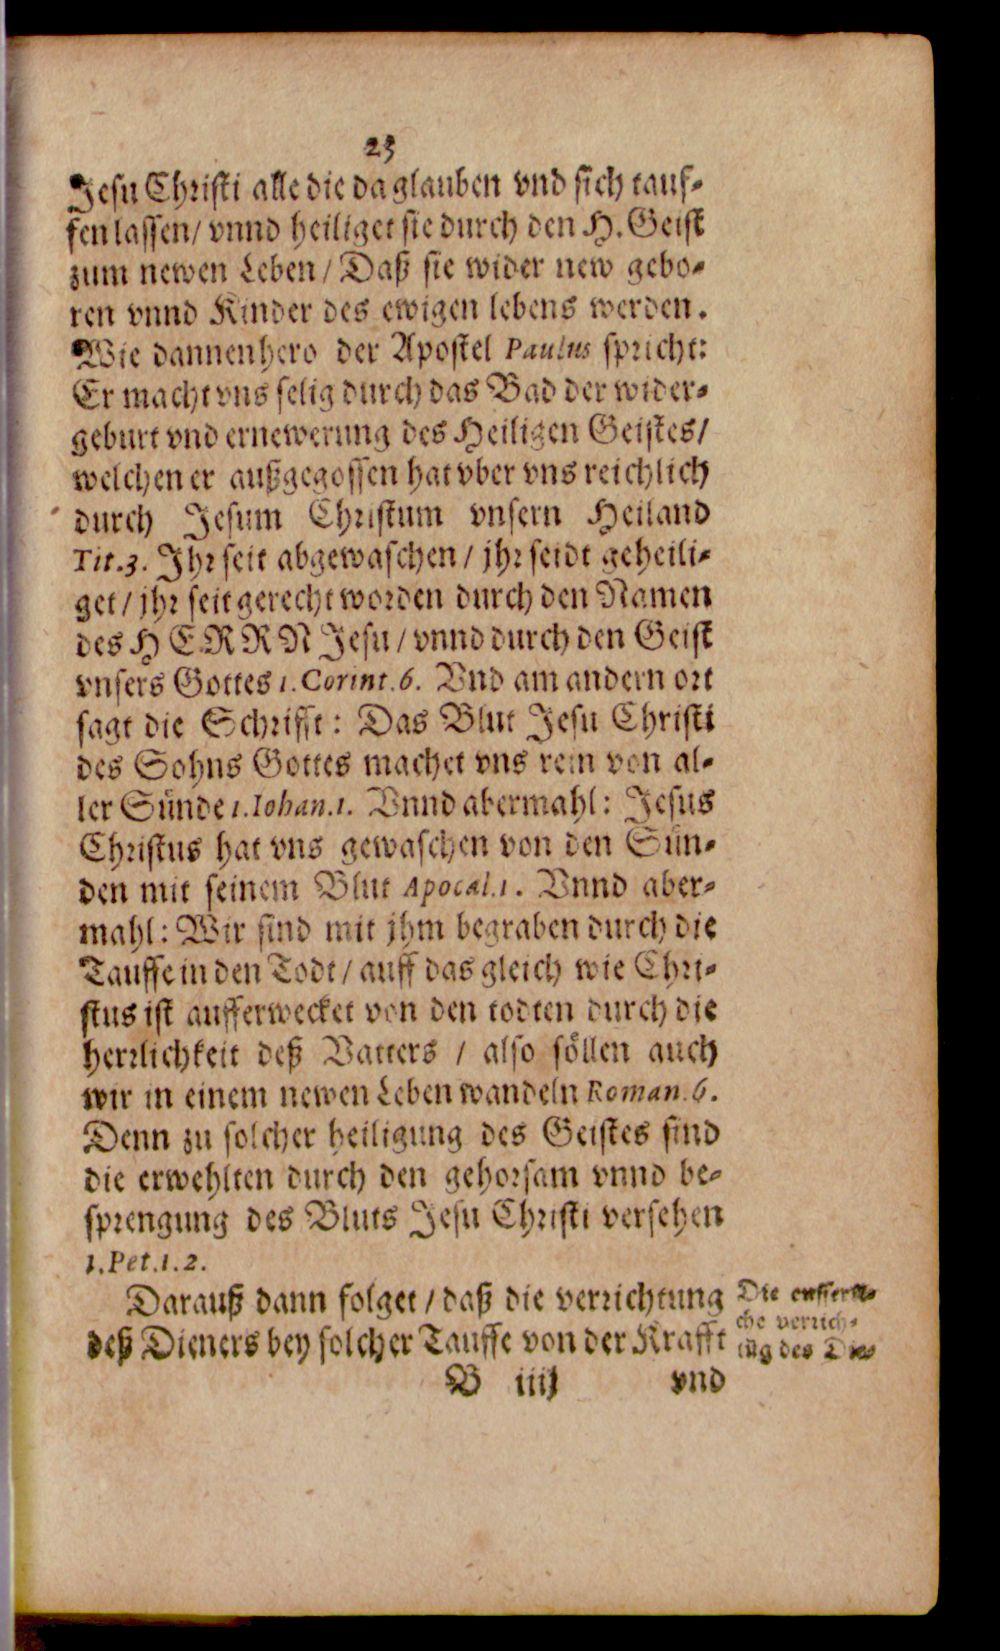 23
Jesu Christi alle die da glauben vnd sich tauf-
fen lassen/ vnnd heiliget sie durch den H. Geist
zum newen Leben / Daß sie wider new gebo-
ren vnnd Kinder des ewigen lebens werden.
Wie dannenhero der Apostel Paulus spricht:
Er macht vns selig durch das Bad der wider-
geburt vnd ernewerung des Heiligen Geistes/
welchen er außgegossen hat vber vns reichlich
durch Jesum Christum vnsern Heiland
Tit.3. Jhr seit abgewaschen / jhr seidt geheili-
get / jhr seit gerecht worden durch den Namen
des HERRN Jesu / vnnd durch den Geist
vnsers Gottes 1. Corint. 6. Vnd am andern ort
sagt die Schrifft: Das Blut Jesu Christi
des Sohns Gottes machet vns rein von al-
ler Sünde 1. Iohan.1. Vnnd abermahl: Jesus
Christus hat vns gewaschen von den Sün-
den mit seinem Blut Apocal.1. Vnnd aber-
mahl: Wir sind mit jhm begraben durch die
Tauffe in den Todt / auff das gleich wie Chri-
stus ist aufferwecket von den todten durch die
herrlichkeit deß Vatters / also söllen auch
wir in einem newen Leben wandeln Roman. 6.
Denn zu solcher heiligung des Geistes sind
die erwehlten durch den gehorsam vnnd be-
sprengung des Bluts Jesu Christi versehen
1. Pet. 1. 2.
Darauß dann folget / daß die verrichtung
deß Dieners bey solcher Tauffe von der Krafft
Die eusserli-
che verrich-
tũg des Die-
B iiij vnd